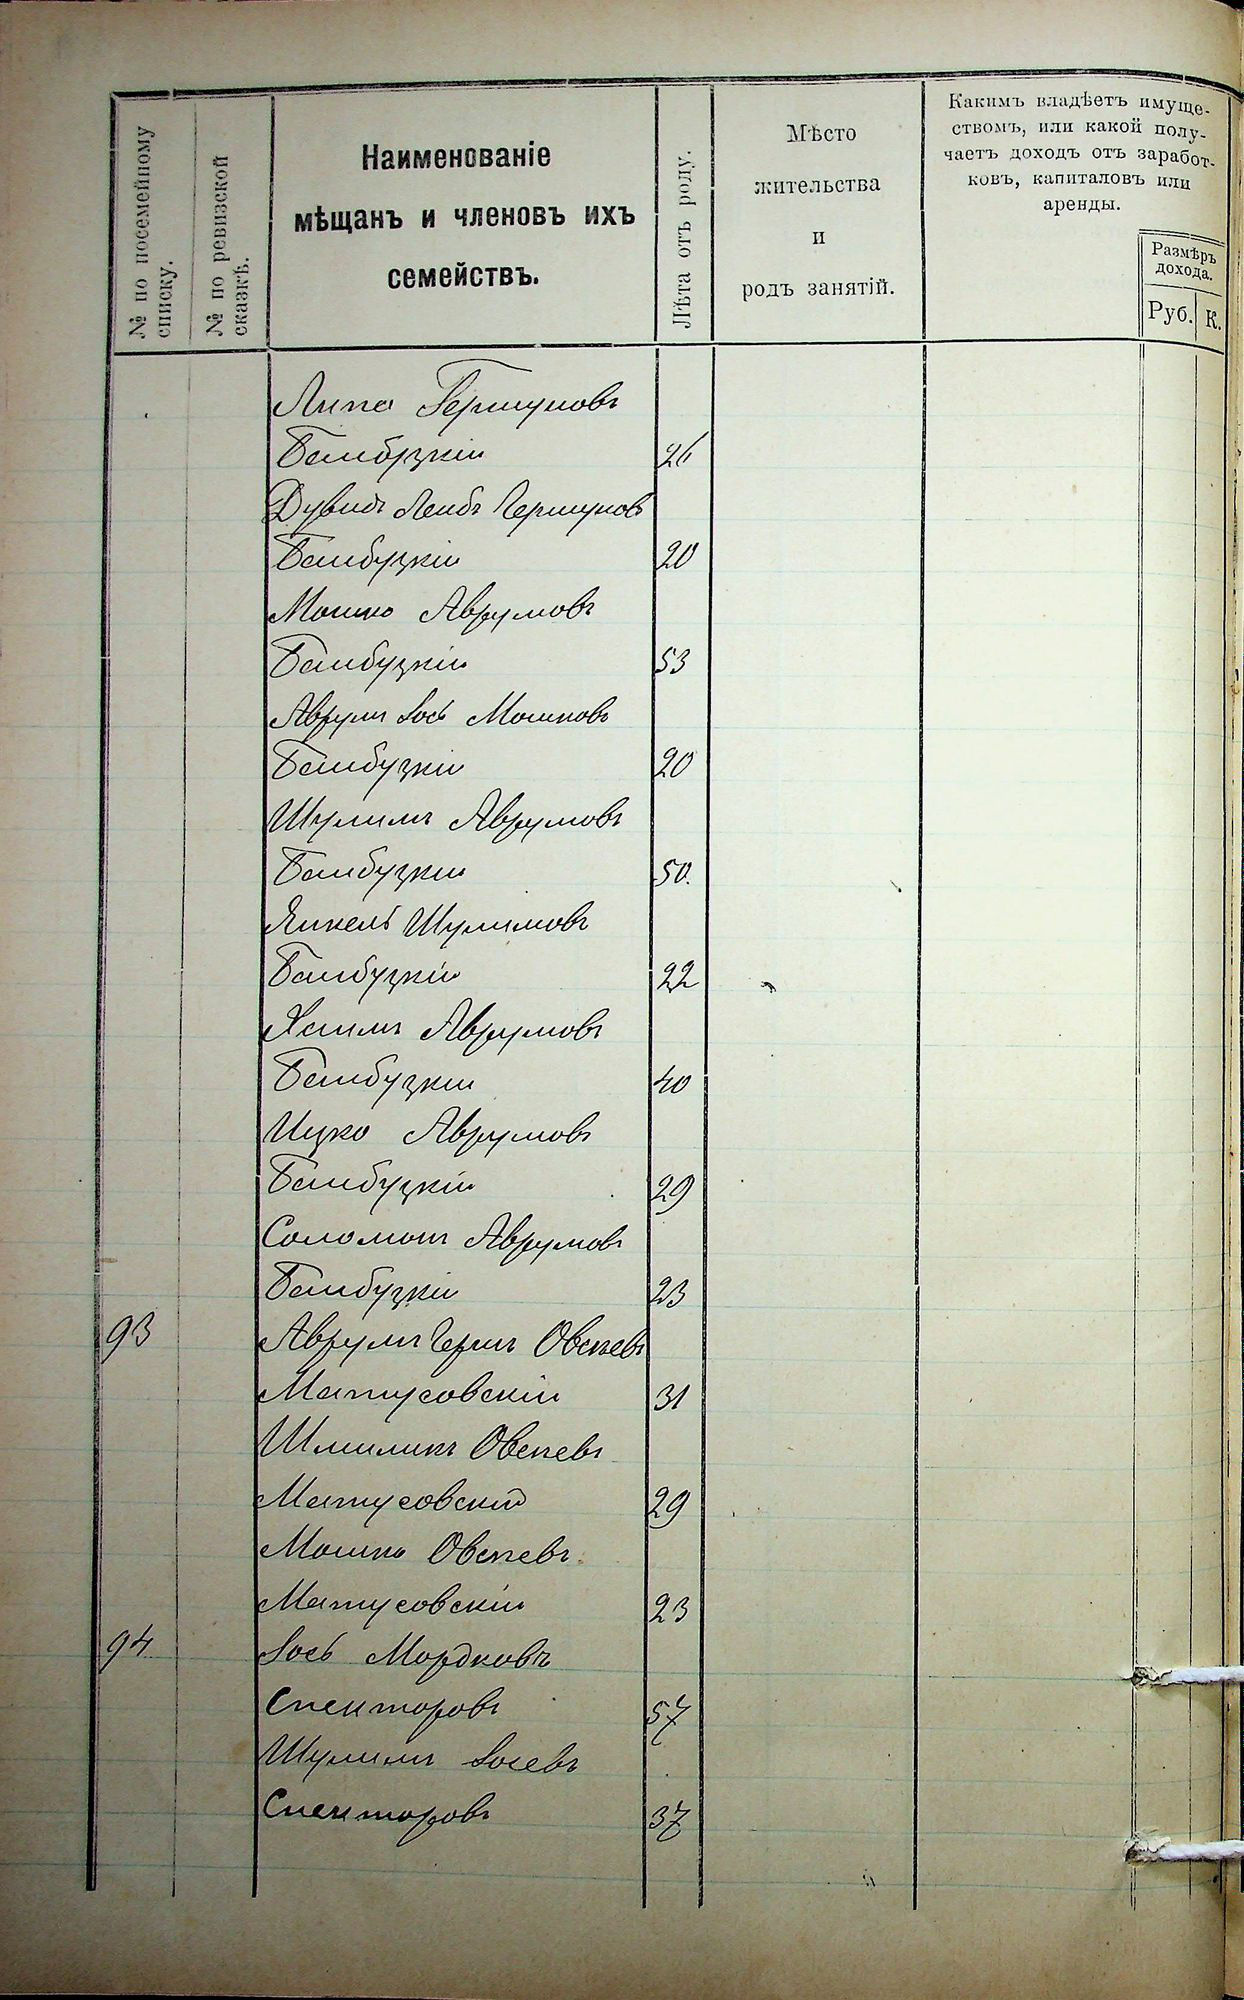 № по посемейному
списку.
№ по ревизской
сказкѣ.
Наименованіе
мѣщанъ и членовъ ихъ
семействъ.
Лѣта отъ роду.
Мѣсто
жительства
и
родъ занятій.
Какимъ владѣетъ имуще-
ствомъ, или какой полу-
чаетъ доходъ отъ заработ-
ковъ, капиталовъ или
аренды.
Размѣръ
дохода.
Руб. К.
Липа Гершуновъ
Бамбуцкій 26
Дувидъ Лейбъ Гершуновъ
Бамбуцкій 20
Мошко Аврумовъ
Бамбуцкій 53
Аврумъ Іось Мошковъ
Бамбуцкій 20
Шулимъ Аврумовъ
Бамбуцкій 50.
Янкель Шулимовъ
Бамбуцкій 22
Хаимъ Аврумовъ
Бамбуцкій 40
Ицко Аврумовъ
Бамбуцкій 29
Соломонъ Аврумовъ
Бамбуцкій 23
93 Аврумъ Гершъ Овсеевъ
Матусовскій 31
Шмиликъ Овсеевъ
Матусовскій 29
Мошко Овсеевъ
Матусовскій 23
94 Іось Мордковъ
Спекторовъ 57
Шулимъ Іосевъ
Спекторовъ 37